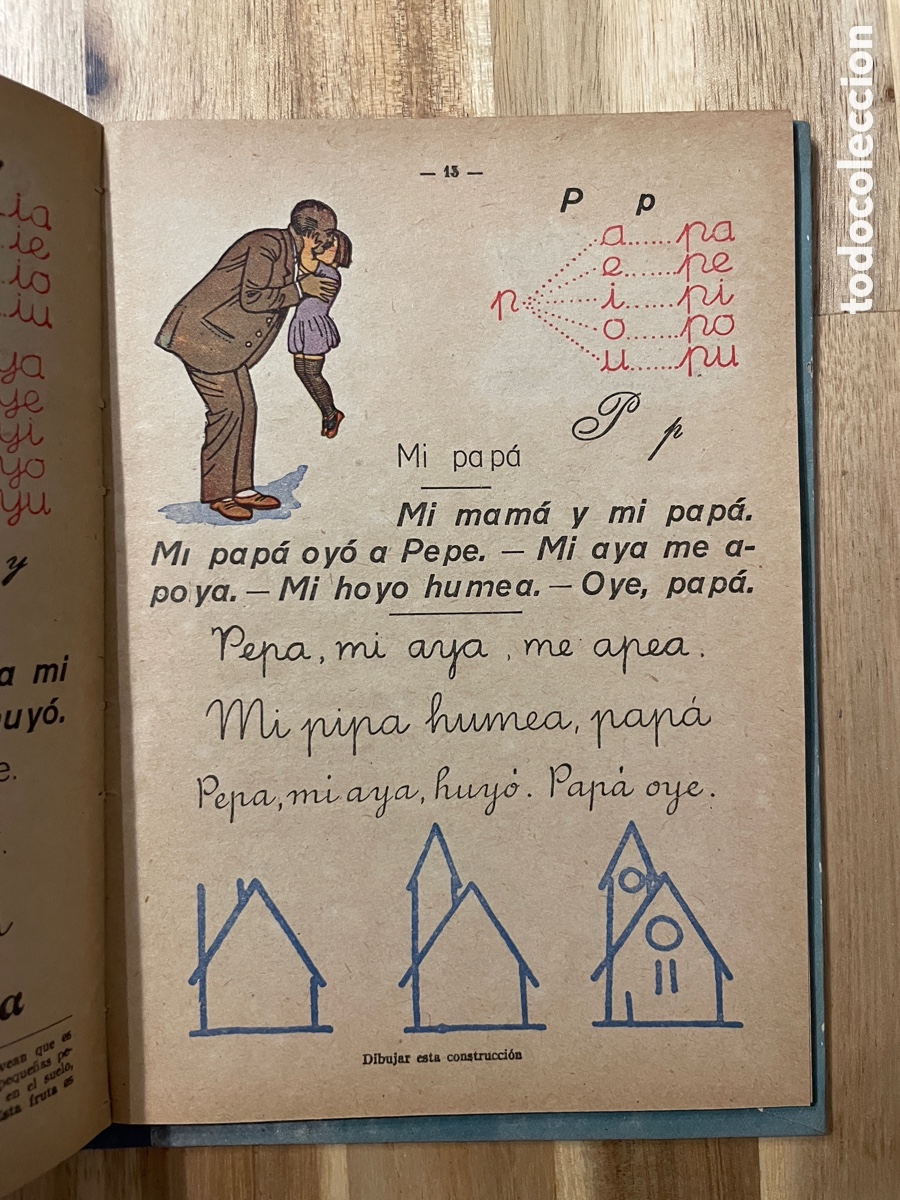 ia
ie
io
iu
ya
ye
yi
yo
yu
y
a mi
uyó.
e.
a
vean que es
pequeñas pe-
en el suelo,
Esta fruta es
— 13 —
P p
p
a......pa
e......pe
i......pi
o......po
u......pu
P p
Mi papá
Mi mamá y mi papá.
Mi papá oyó a Pepe. — Mi aya me a-
poya. — Mi hoyo humea. — Oye, papá.
Pepa, mi aya, me apea.
Mi pipa humea, papá
Pepa, mi aya, huyó. Papá oye.
Dibujar esta construcción
todocoleccion